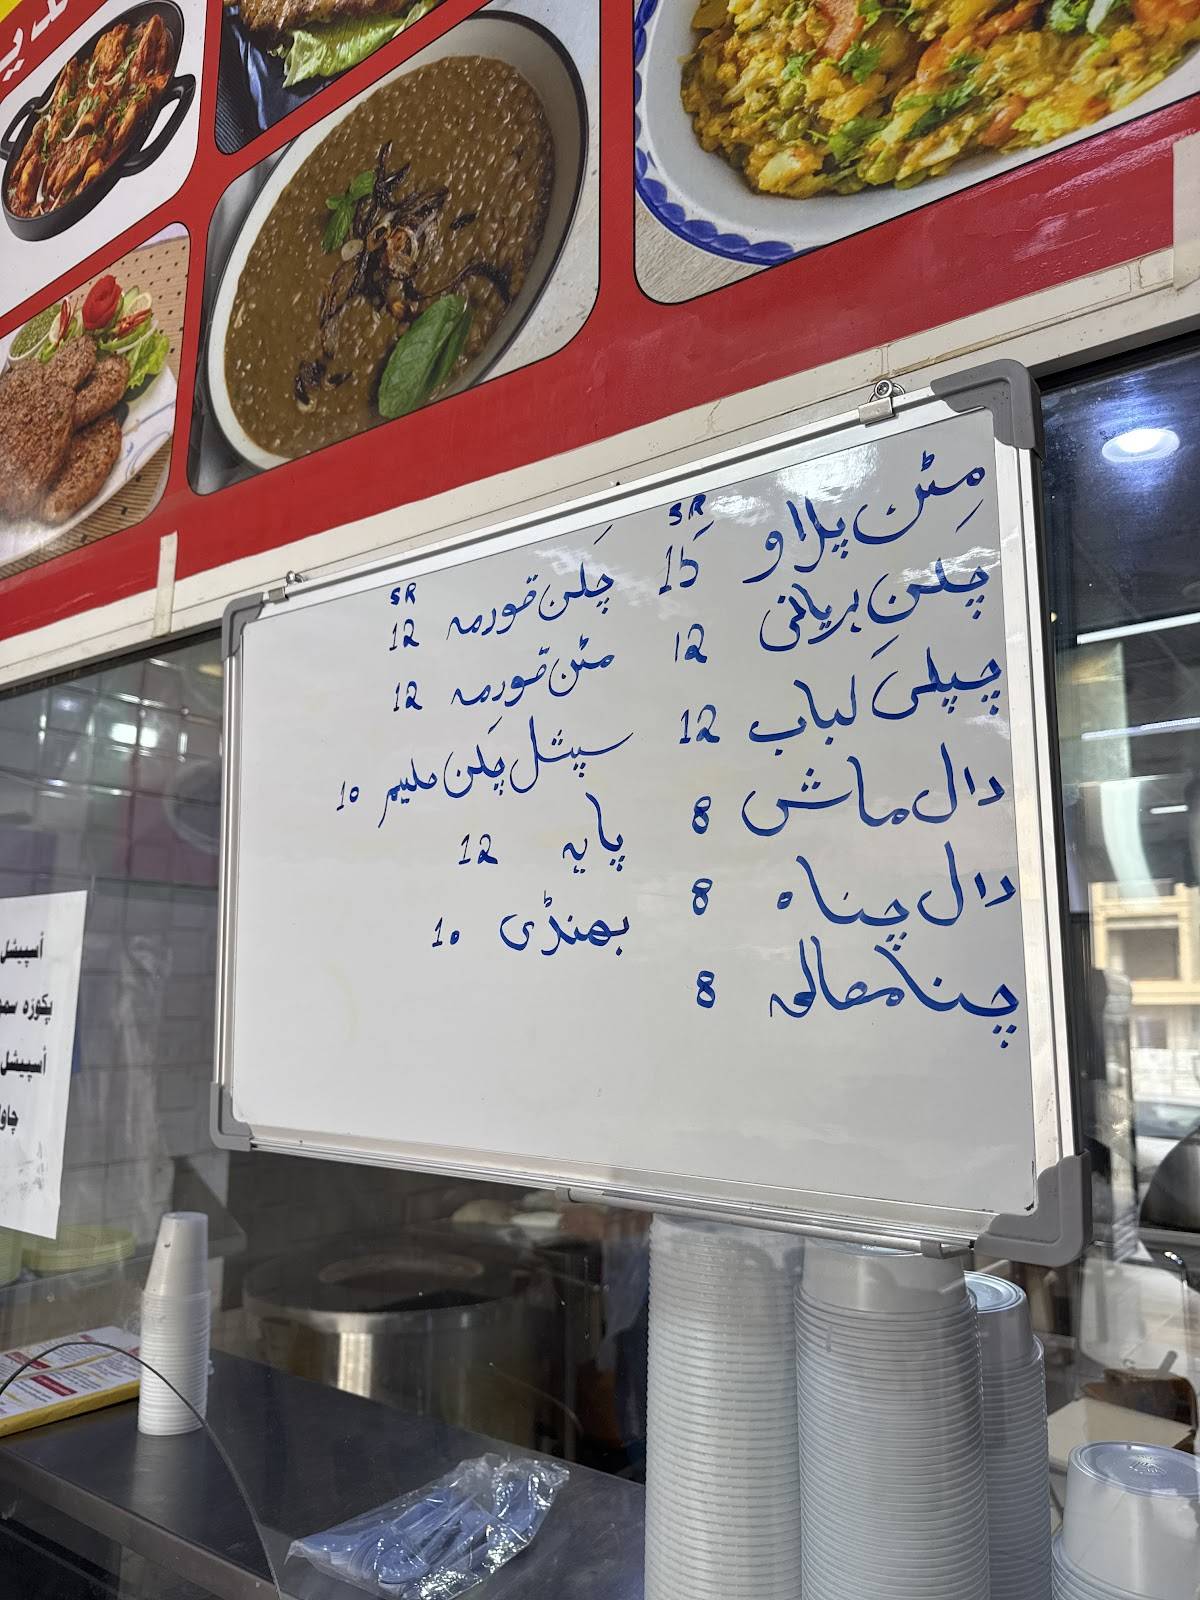 SR
مٹن پلاو 15
چکن بریانی 12
چپلی کباب 12
دال ماش 8
دال چناہ 8
چنا مصالحہ 8
SR
چکن قورمہ 12
مٹن قورمہ 12
سپیشل چکن حلیم 10
پایہ 12
بھنڈی 10
أسپیشل
پکوڑہ سمو
أسپیشل
چاو